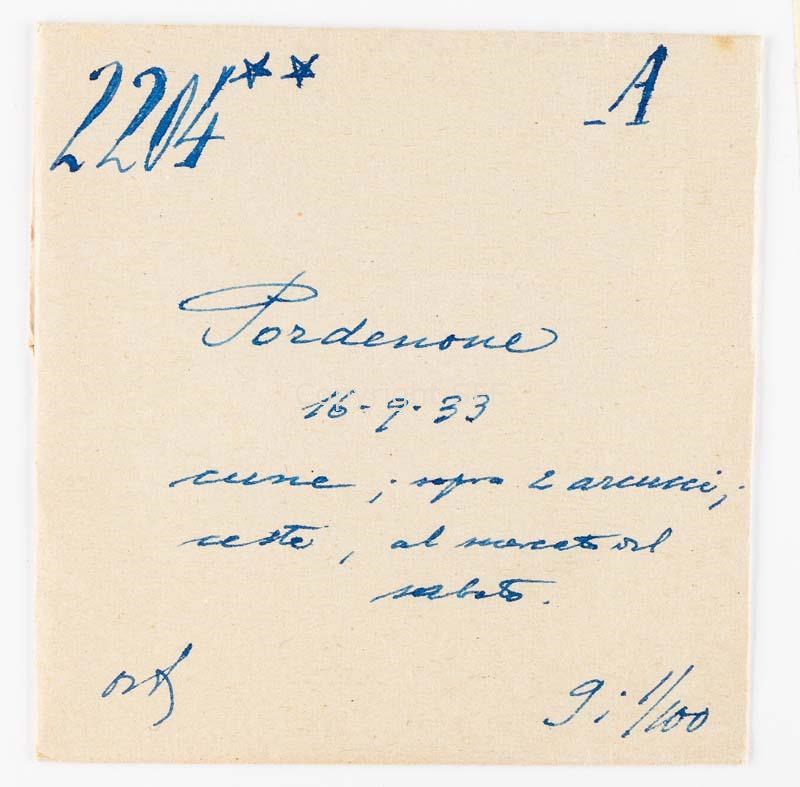 2204**
A
Pordenone
16-9-33
cune; sopra 2 arcucci;
ceste, al mercato del
sabato.
9; 1/100